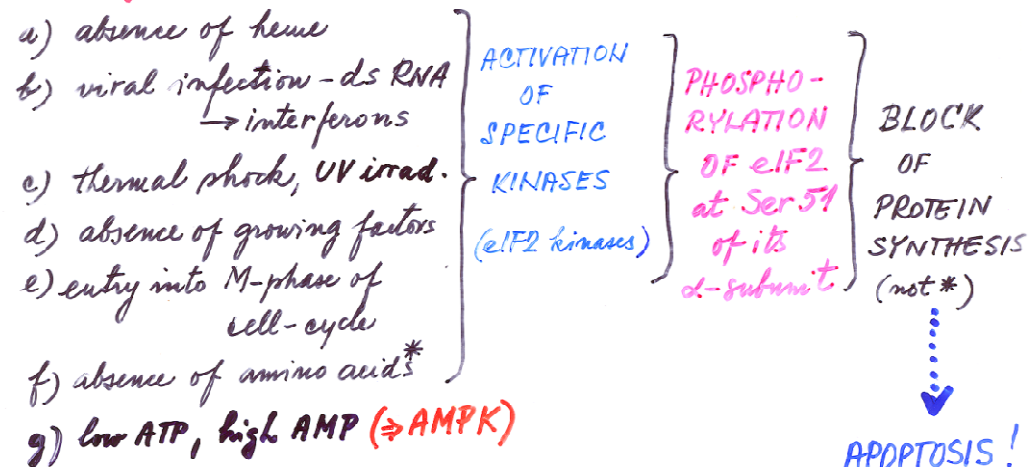 a) absence of heme
b) viral infection - ds RNA
→ interferons
c) thermal shock, UV irrad.
d) absence of growing factors
e) entry into M-phase of
cell-cycle
f) absence of amino acids*
g) low ATP, high AMP (⇒ AMPK)
ACTIVATION
OF
SPECIFIC
KINASES
(eIF2 kinases)
PHOSPHO-
RYLATION
OF eIF2
at Ser 51
of its
α-subunit
BLOCK
OF
PROTEIN
SYNTHESIS
(not *)
APOPTOSIS!